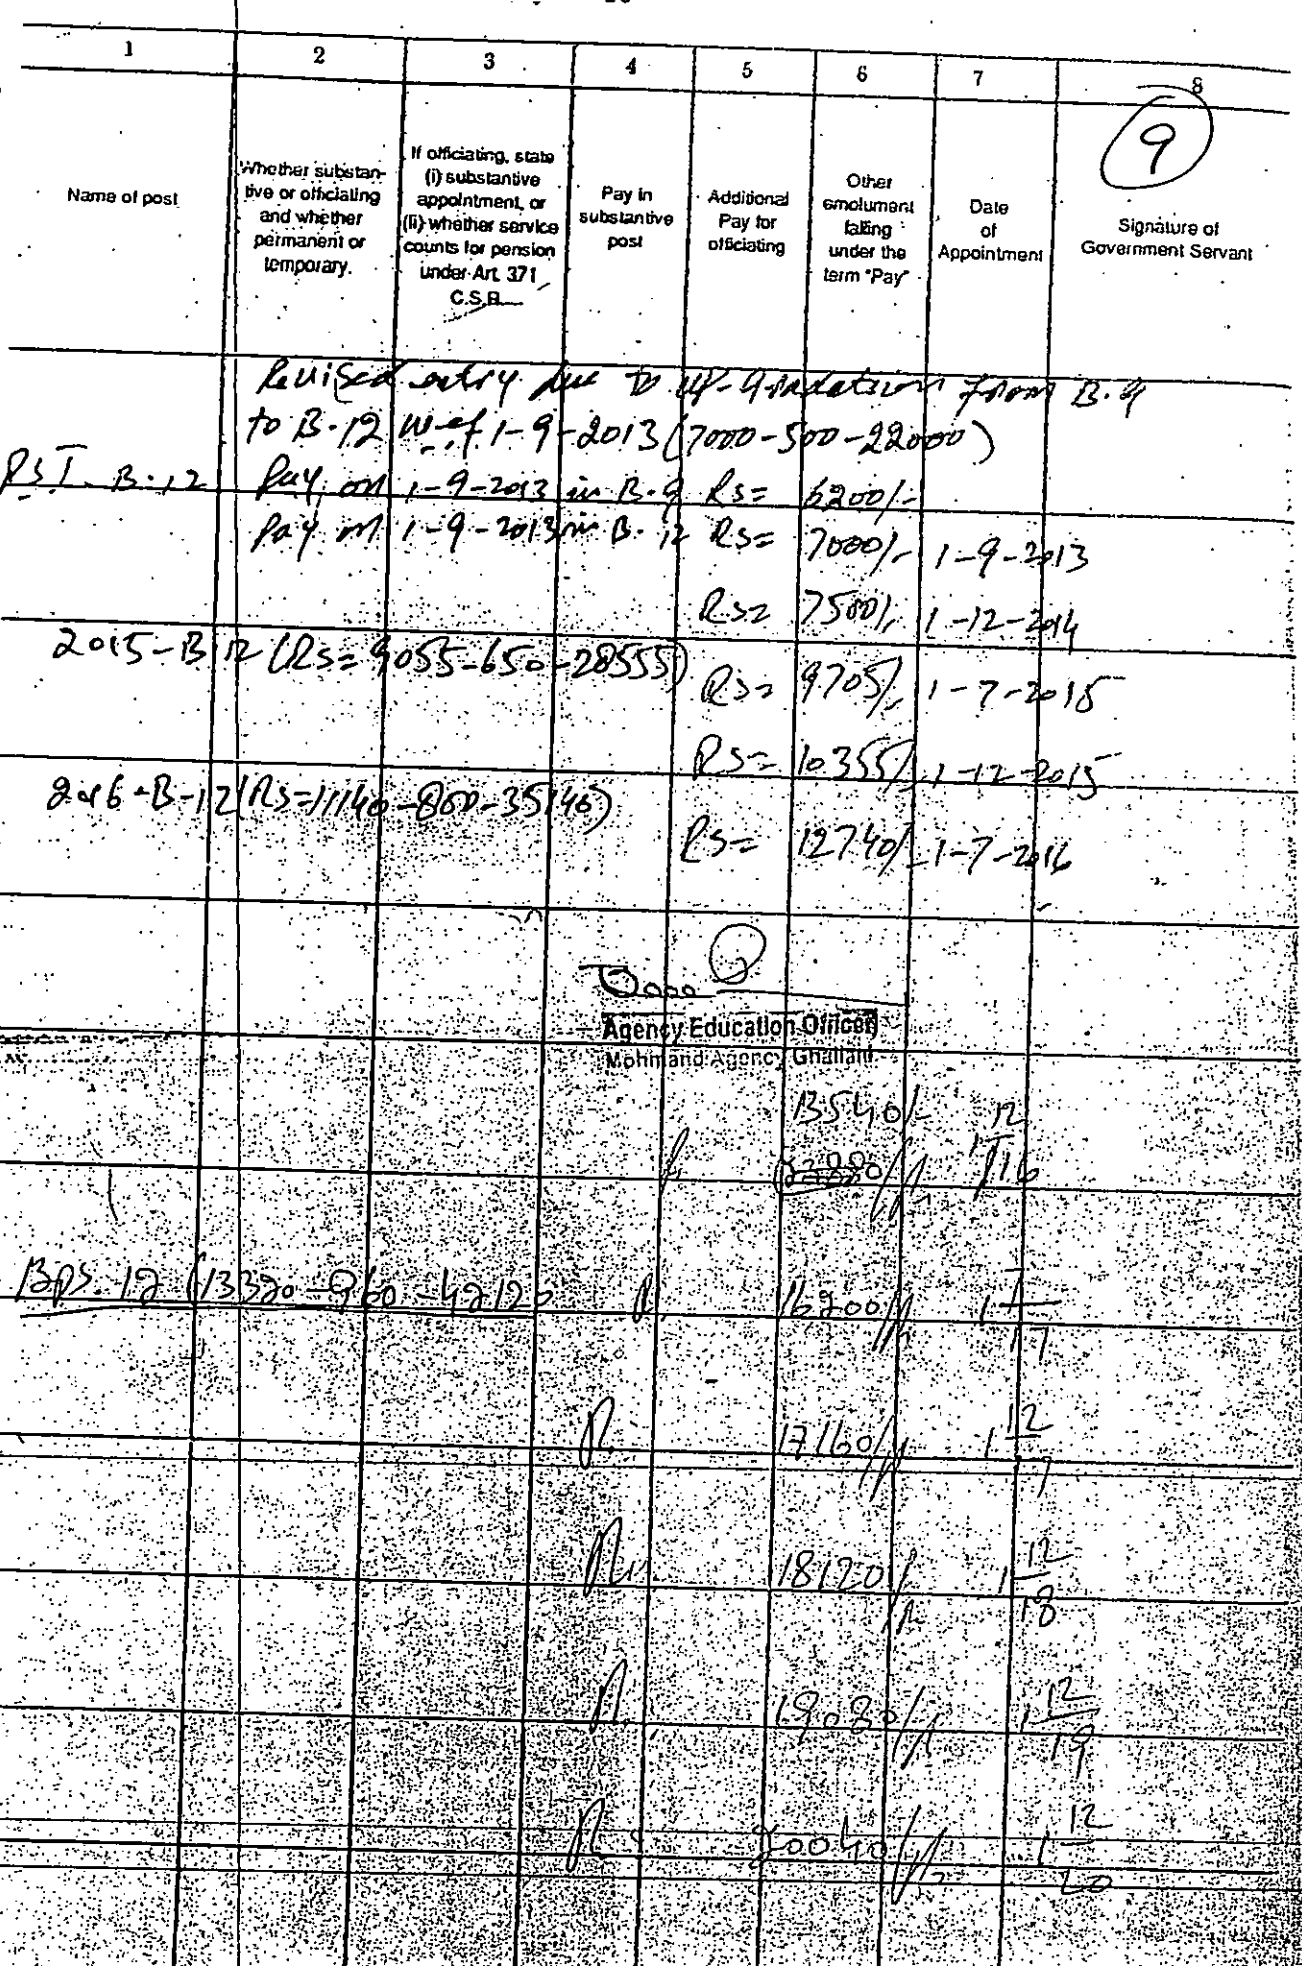 1 2 3 4 5 6 7 8
9
Name of post
Whether substan-
tive or officiating
and whether
permanent or
temporary.
If officiating, state
(i) substantive
appointment, or
(ii) whether service
counts for pension
under Art. 371
C.S.R.
Pay in
substantive
post
Additional
Pay for
officiating
Other
emolument
falling
under the
term "Pay"
Date
of
Appointment
Signature of
Government Servant
Revised entry due to up-gradation from B.9
to B.12 w.e.f 1-9-2013 (7000-500-22000)
PST. B.12 Pay on 1-9-2013 in B.9 Rs= 6200/-
Pay on 1-9-2013 in B.12 Rs= 7000/- 1-9-2013
Rs= 7500/- 1-12-2014
2015-B 12 (Rs= 9055-650-28555) Rs= 9705/- 1-7-2015
Rs= 10355/- 1-12-2015
2016-B-12 (Rs=11140-800-35140)
Rs= 12740/- 1-7-2016
Agency Education Officer
Mohmand Agency Ghallani
13540/- 12
16
Bps. 12 (13320-960-42120 16200/- 1 7/17
17160/- 1 12/17
18120/- 1 12/18
19080/- 1 12/19
20040/- 1 12/20